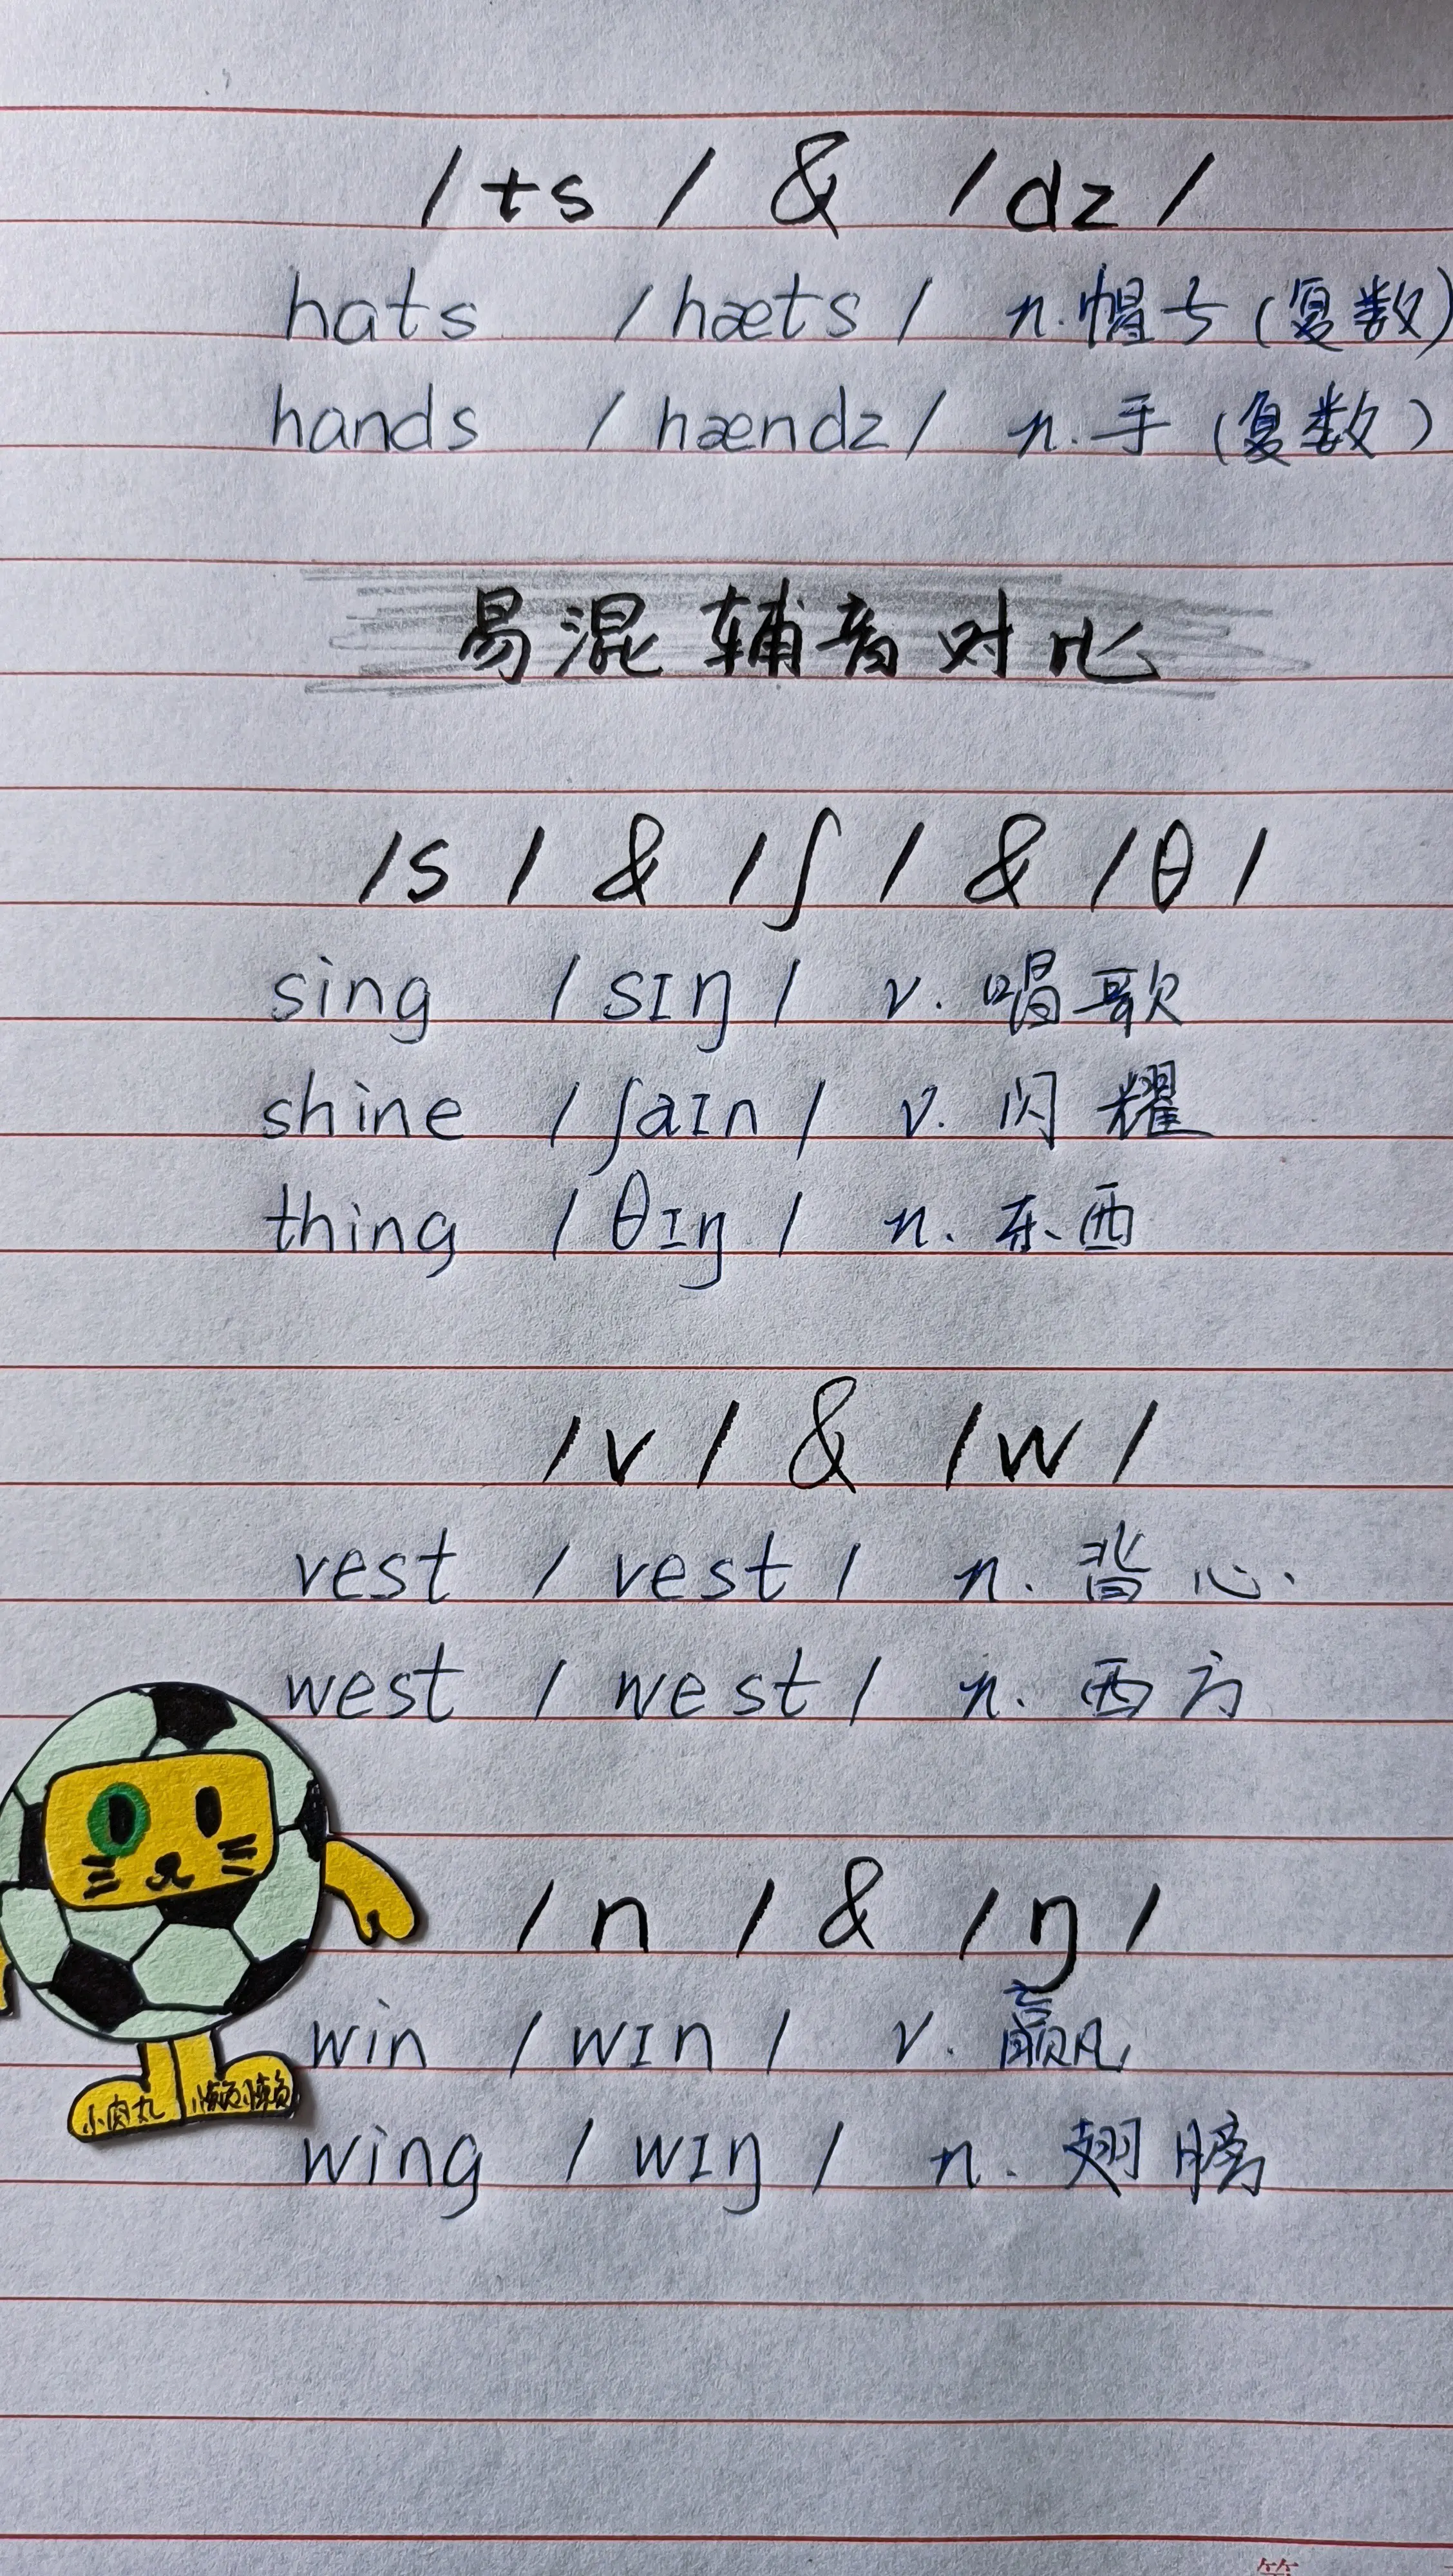 /ts/ & /dz/
hats /hæts/ n.帽子(复数)
hands /hændz/ n.手(复数)
易混辅音对比
/s/ & /ʃ/ & /θ/
sing /sɪŋ/ v.唱歌
shine /ʃaɪn/ v.闪耀
thing /θɪŋ/ n.东西
/v/ & /w/
vest /vest/ n.背心.
west /west/ n.西方
/n/ & /ŋ/
win /wɪn/ v.赢
小肉丸 懒懒
wing /wɪŋ/ n.翅膀
第